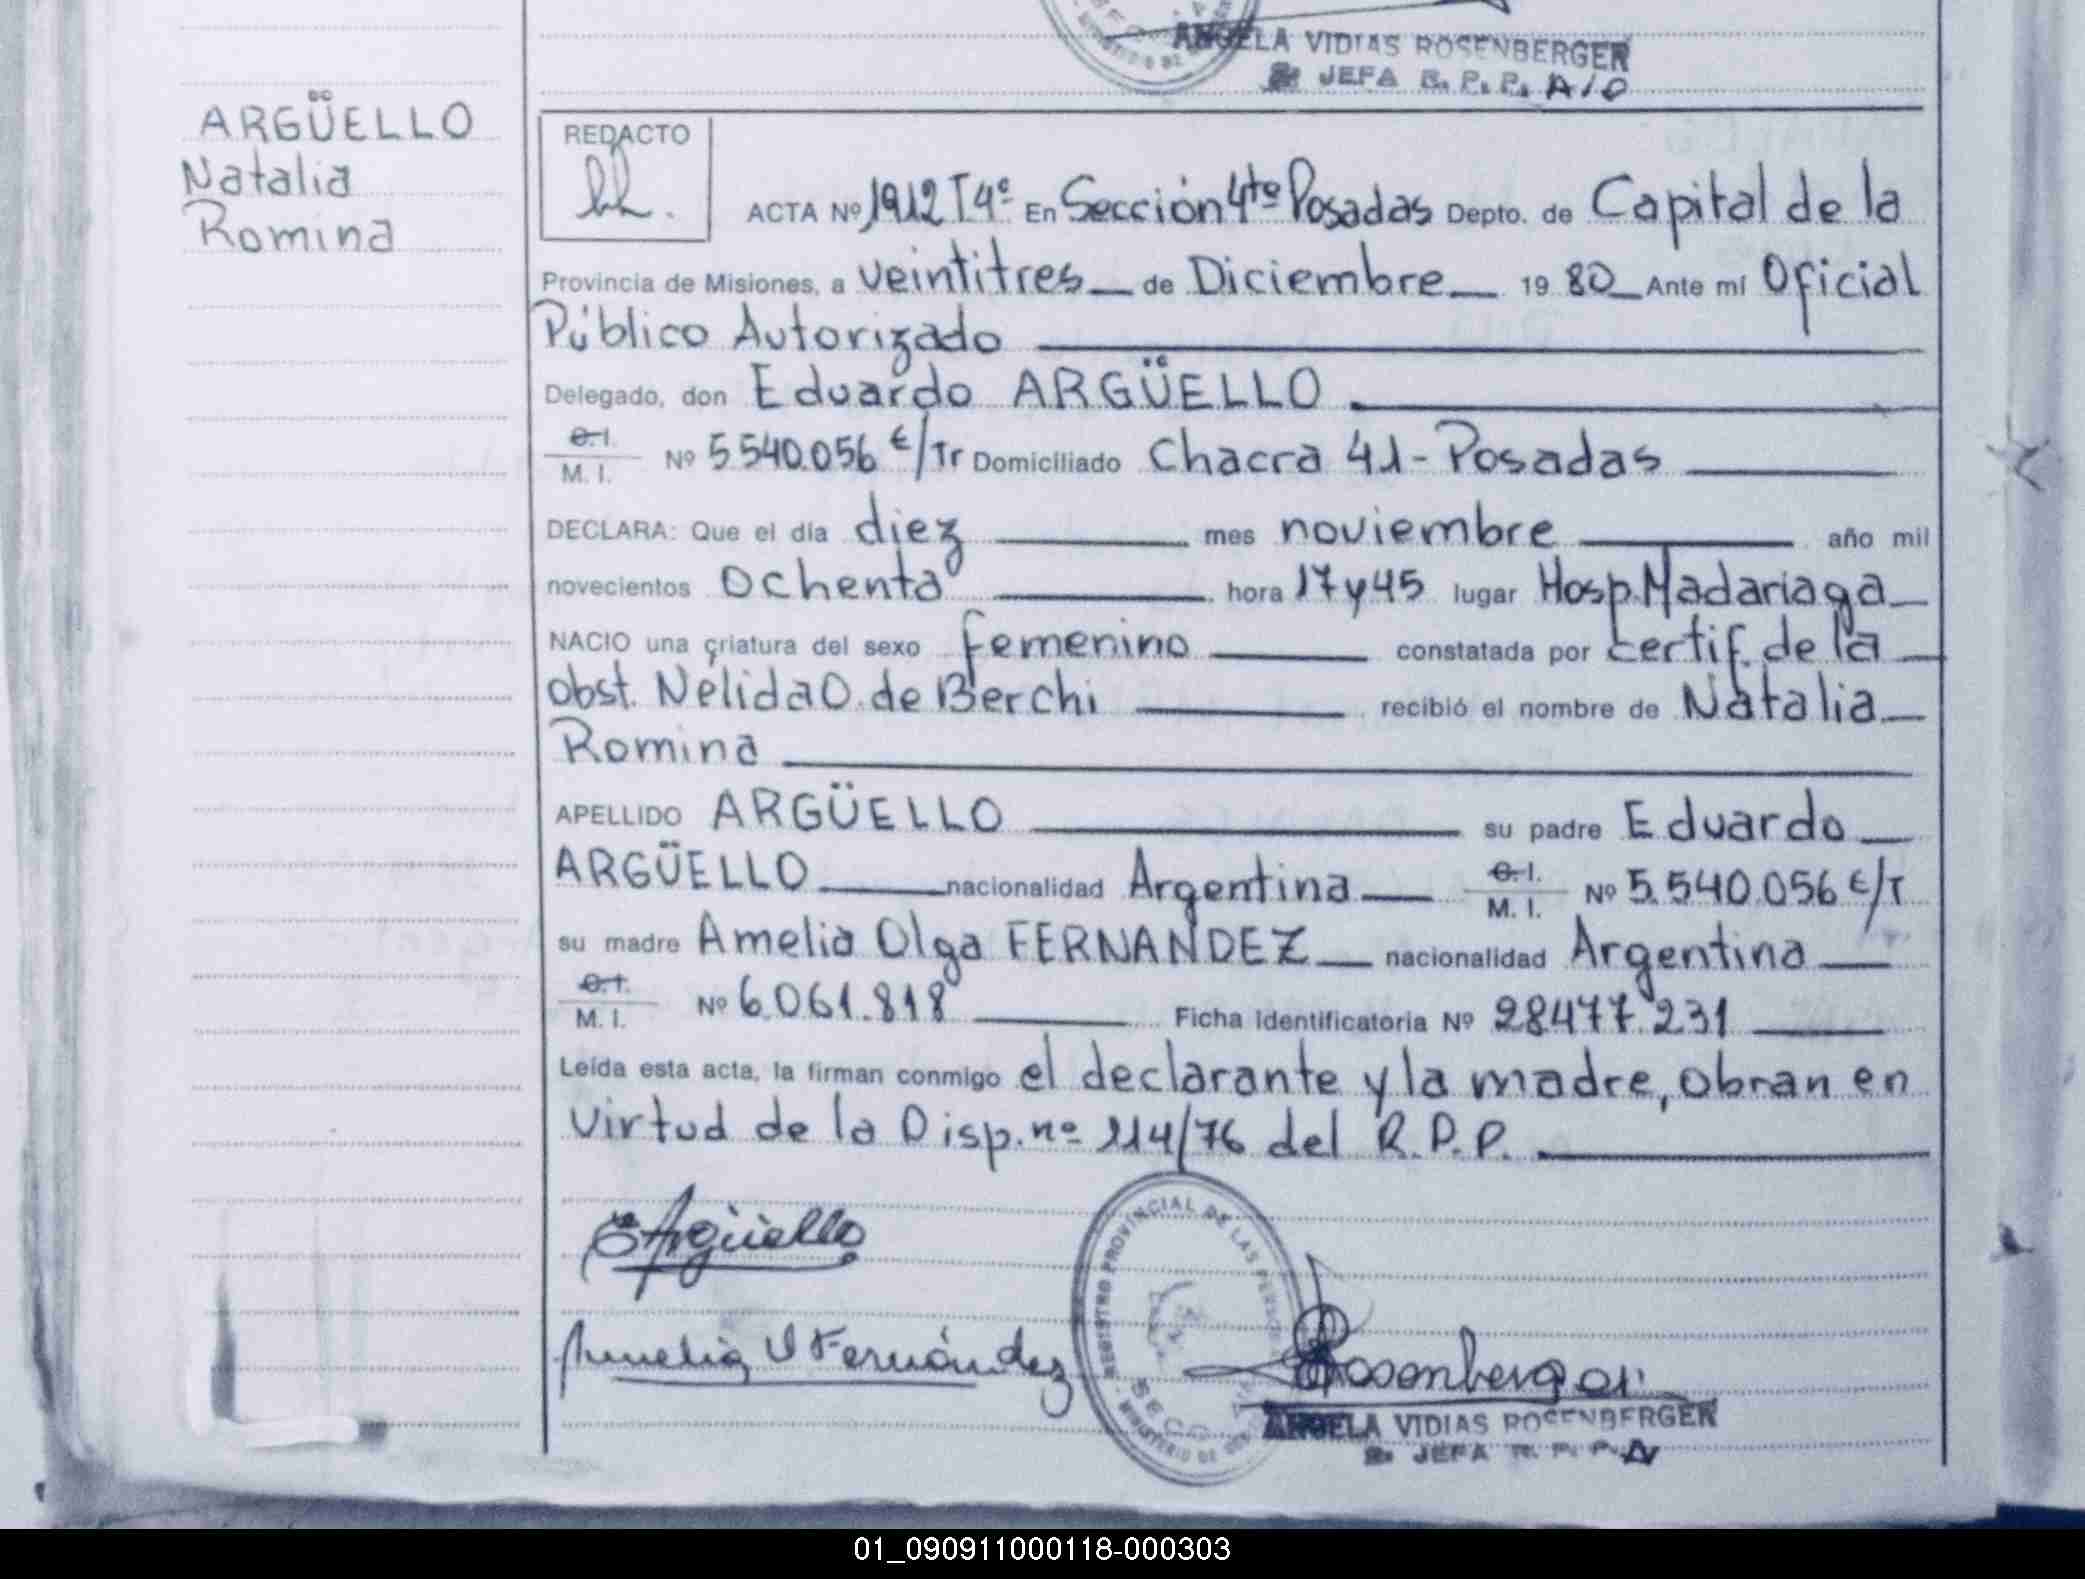 ANGELA VIDIAS ROSENBERGER
JEFA R. P. P. A/O
ARGÜELLO
Natalia
Romina
REDACTO
ACTA Nº 1912 T4º En Sección 4ta Posadas Depto. de Capital de la
Provincia de Misiones, a veintitres de Diciembre 19 80 Ante mí Oficial
Público Autorizado
Delegado, don Eduardo ARGÜELLO
C.I.
M. I. Nº 5.540.056 E/Tr Domiciliado Chacra 41 - Posadas
DECLARA: Que el día diez mes noviembre año mil
novecientos Ochenta hora 17 y 45 lugar Hosp. Madariaga
NACIO una criatura del sexo femenino constatada por certif. de la
obst. Nelida O. de Berchi recibió el nombre de Natalia
Romina
APELLIDO ARGÜELLO su padre Eduardo
ARGÜELLO nacionalidad Argentina C.I. M. I. Nº 5.540.056 E/T
su madre Amelia Olga FERNANDEZ nacionalidad Argentina
C.I.
M. I. Nº 6.061.818 Ficha Identificatoria Nº 28477.231
Leída esta acta, la firman conmigo el declarante y la madre, obran en
virtud de la Disp. nº 114/76 del R.P.P.
E Argüello
REGISTRO PROVINCIAL DE LAS PERSONAS
Amelia O Fernández
Rosenberger
ANGELA VIDIAS ROSENBERGER
JEFA R. P. P. A
01_090911000118-000303